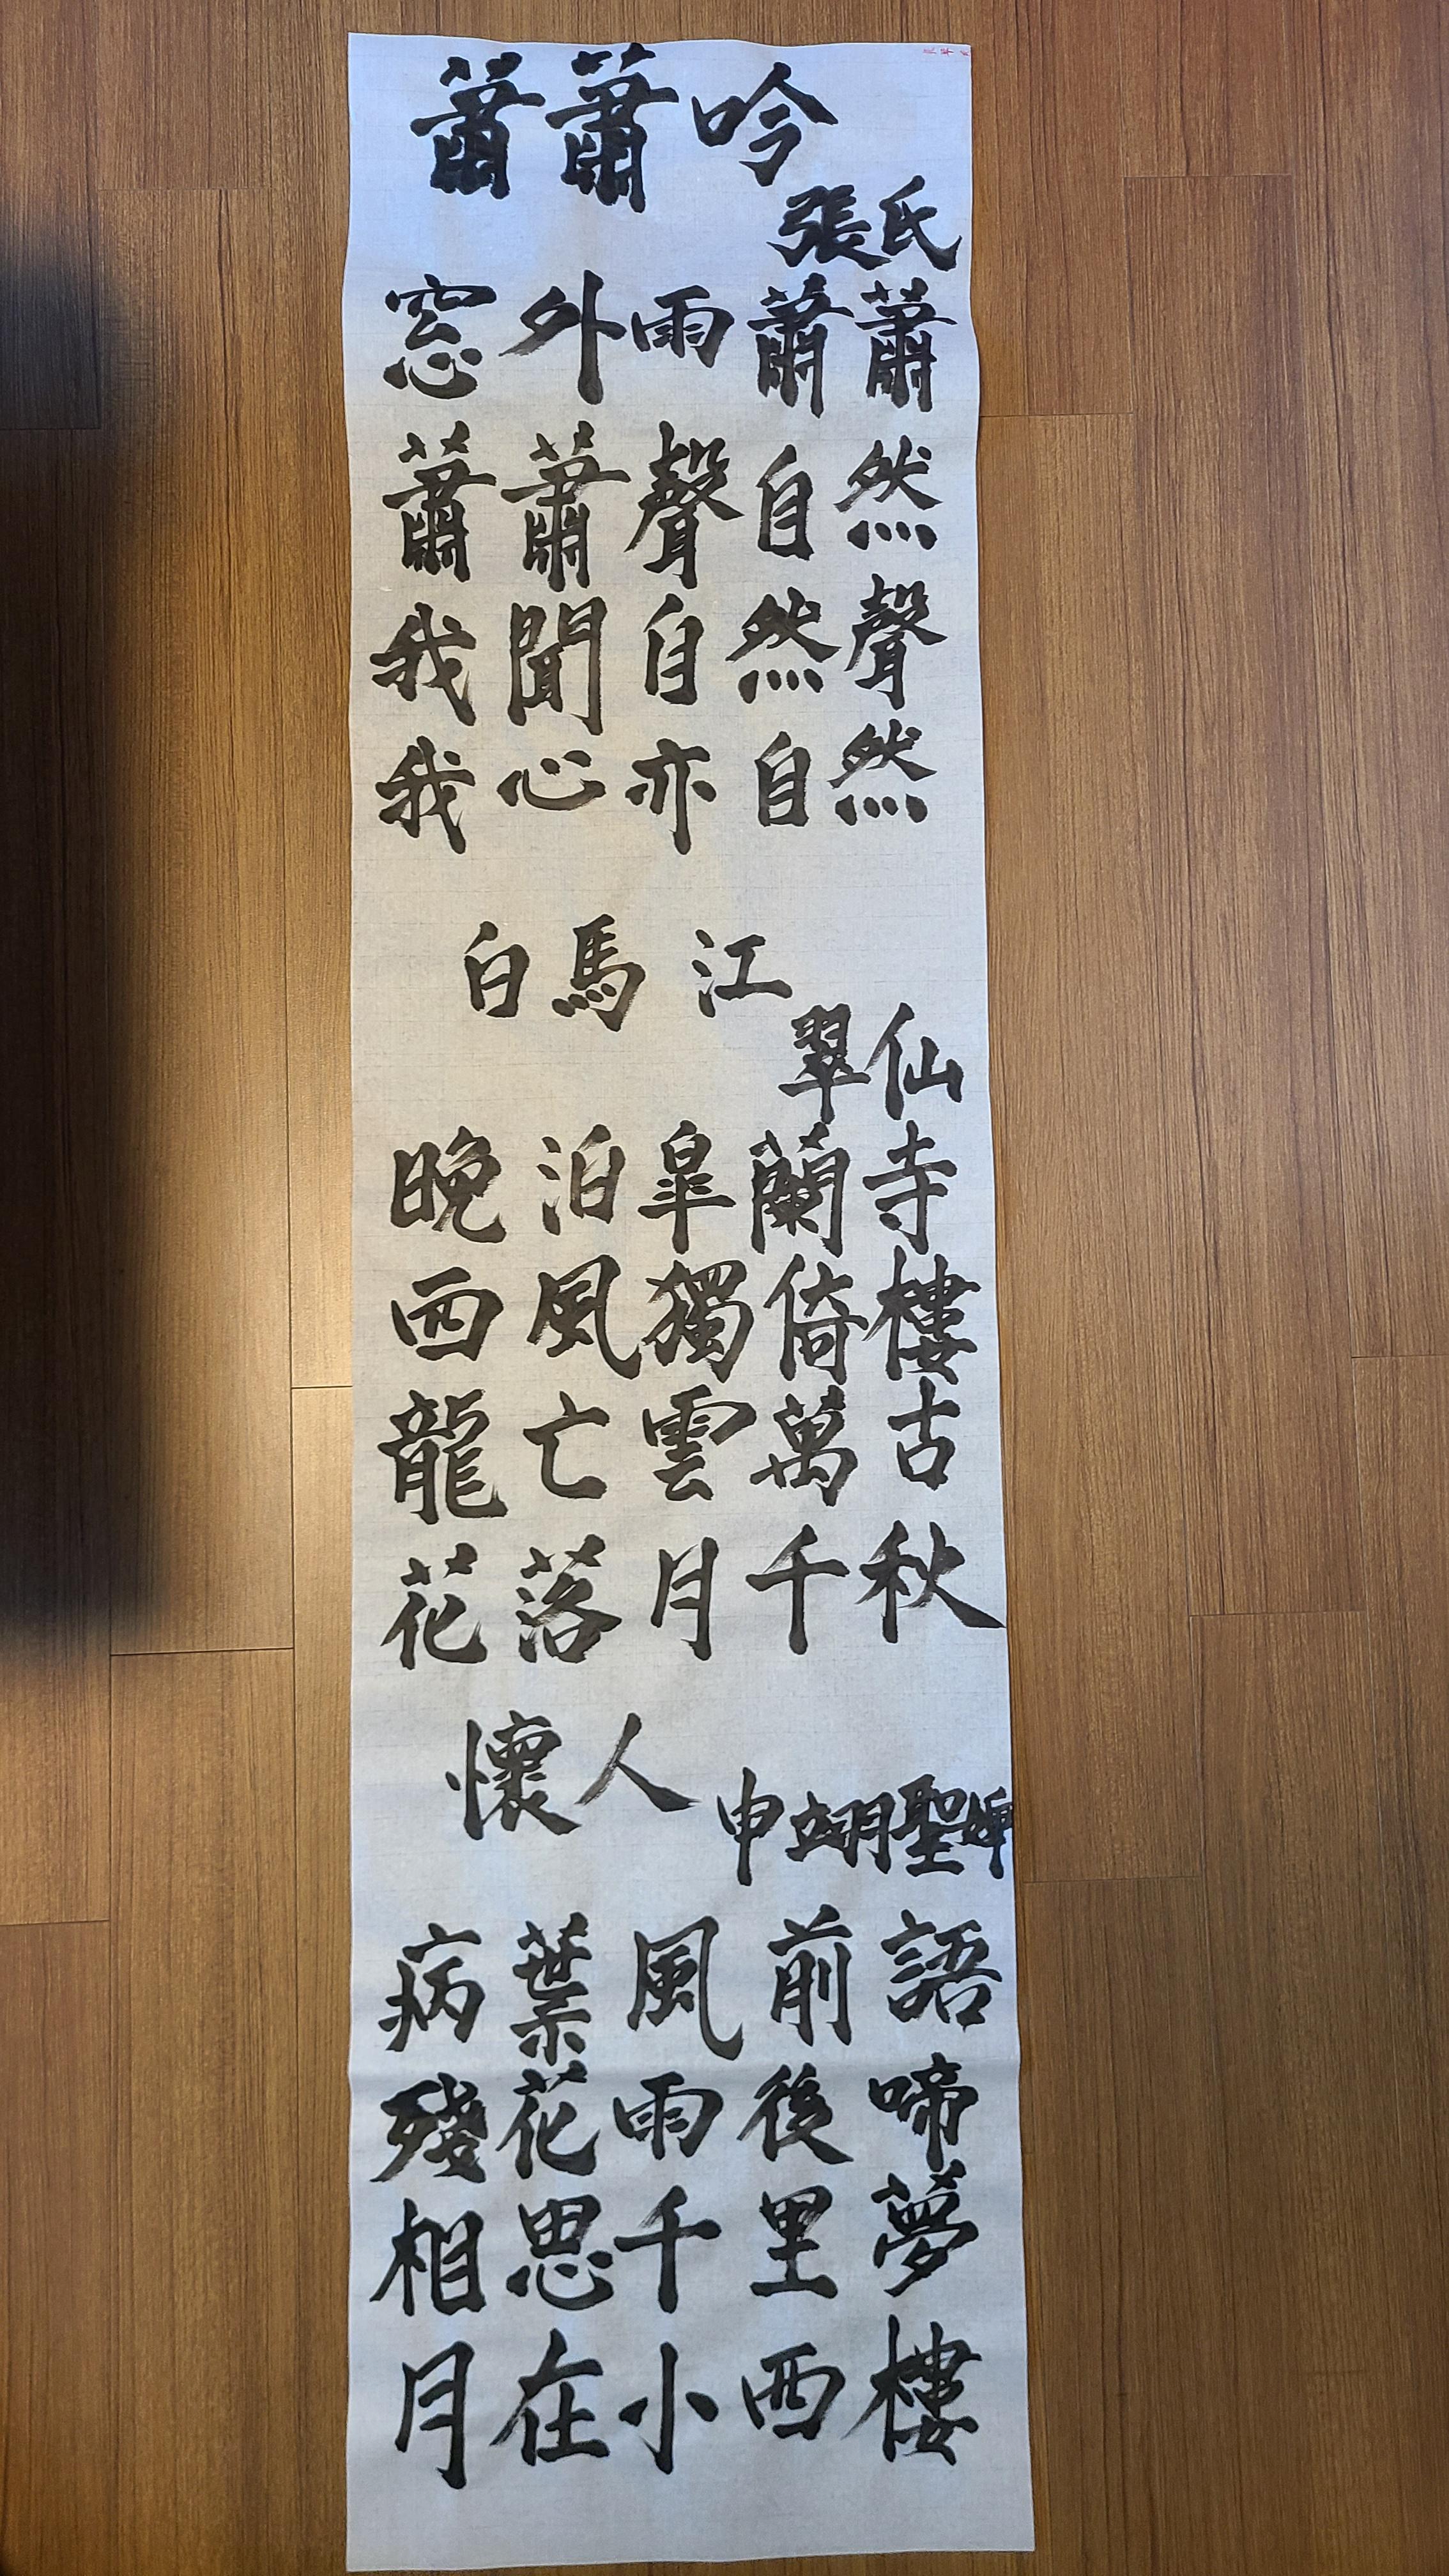 蕭蕭吟
張氏
窓外雨蕭蕭
蕭蕭聲自然
我聞自然聲
我心亦自然
白馬江
翠仙
晩泊皐蘭寺
西風獨倚樓
龍亡雲萬古
花落月千秋
懷人
申翊聖婢
病葉風前語
殘花雨後啼
相思千里夢
月在小西樓